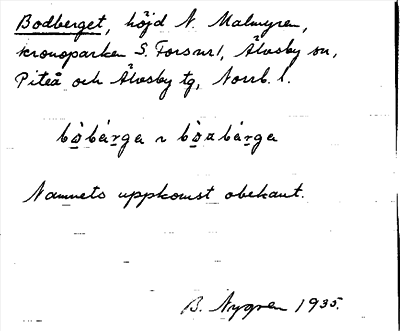 Bodberget, höjd N. Malmyren,
kronoparken S. Forsnr 1, Älvsby sn,
Piteå och Älvsby tg, Norrb. l.
bòbárga ~ bòabárga
Namnets uppkomst obekant.
B. Nygren 1935.